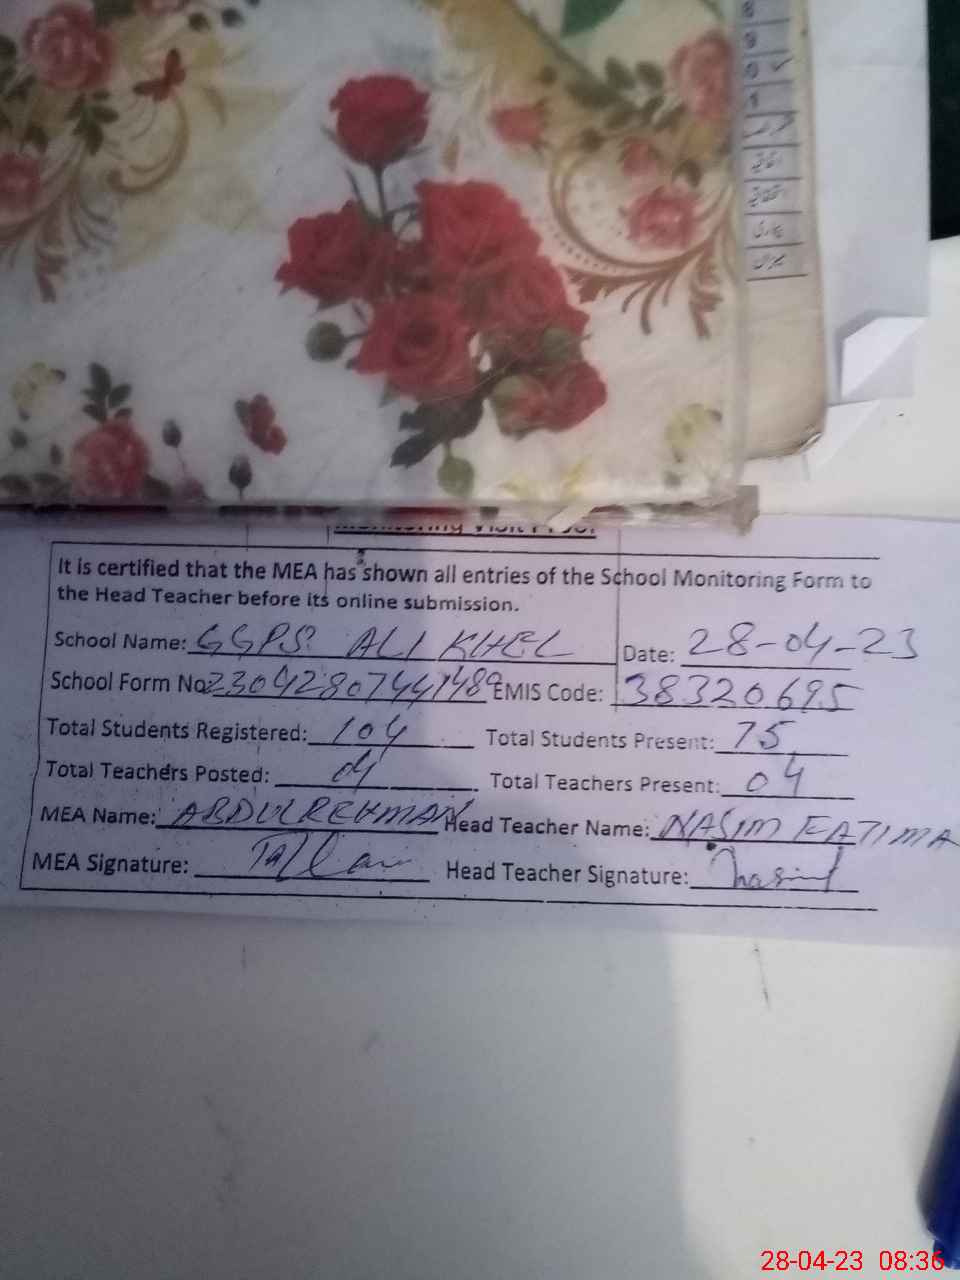 Monitoring Visit Proof
It is certified that the MEA has shown all entries of the School Monitoring Form to
the Head Teacher before its online submission.
School Name: GGPS ALI KHEL Date: 28-04-23
School Form No EMIS Code: 38320695
Total Students Registered: 104 Total Students Present: 75
Total Teachers Posted: 04 Total Teachers Present: 04
MEA Name: ABDULREHMAN Head Teacher Name: NASIM FATIMA
MEA Signature: Head Teacher Signature: Nasim
28-04-23 08:36